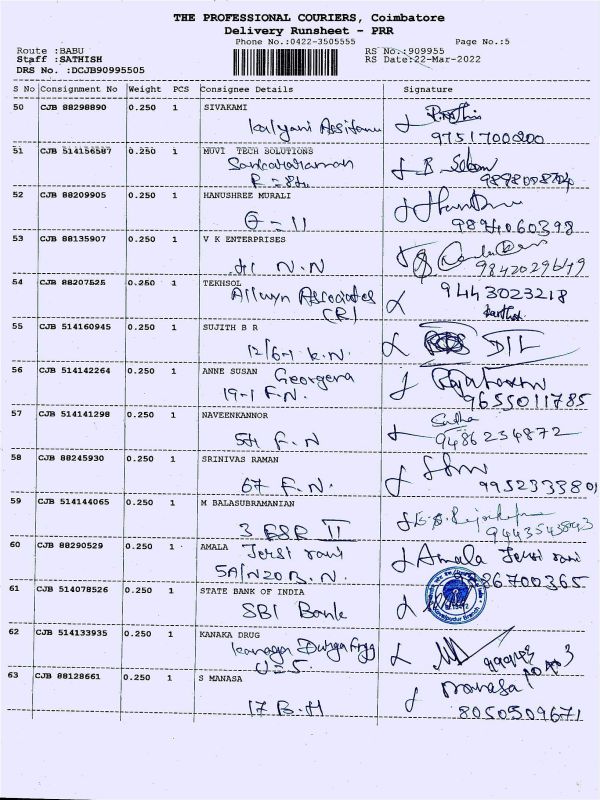 THE PROFESSIONAL COURIERS, Coimbatore
Delivery Runsheet - PRR
Phone No.:0422-3505555
Page No.:5
Route :BABU
RS No.:909955
Staff :SATHISH
RS Date:22-Mar-2022
DRS No. :DCJB90995505
S No Consignment No Weight PCS Consignee Details Signature
50 CJB 88298890 0.250 1 SIVAKAMI
Kalyani
9751700200
51 CJB 514156587 0.250 1 MUVI TECH SOLUTIONS
Sankararaman
52 CJB 88209905 0.250 1 HANUSHREE MURALI
G - 11
9894060398
53 CJB 88135907 0.250 1 V K ENTERPRISES
N.N
9842029649
54 CJB 88207525 0.250 1 TEKHSOL
9443023218
Allwyn Associates
(CR)
55 CJB 514160945 0.250 1 SUJITH B R
12/6-1 K.N.
56 CJB 514142264 0.250 1 ANNE SUSAN Georgena
19-1 F.N.
9655011785
57 CJB 514141298 0.250 1 NAVEENKANNOR
Sudha
54 F.N
9486234872
58 CJB 88245930 0.250 1 SRINIVAS RAMAN
67 F.N.
9952333801
59 CJB 514144065 0.250 1 M BALASUBRAMANIAN
3 ESR II
60 CJB 88290529 0.250 1 AMALA Jersi rani
Amala Jersi rani
5A/N20 B.N.
86700365
61 CJB 514078526 0.250 1 STATE BANK OF INDIA
SBI Bank
62 CJB 514133935 0.250 1 KANAKA DRUG
U-5.
63 CJB 88128661 0.250 1 S MANASA
manasa
17 B.H
8050509671